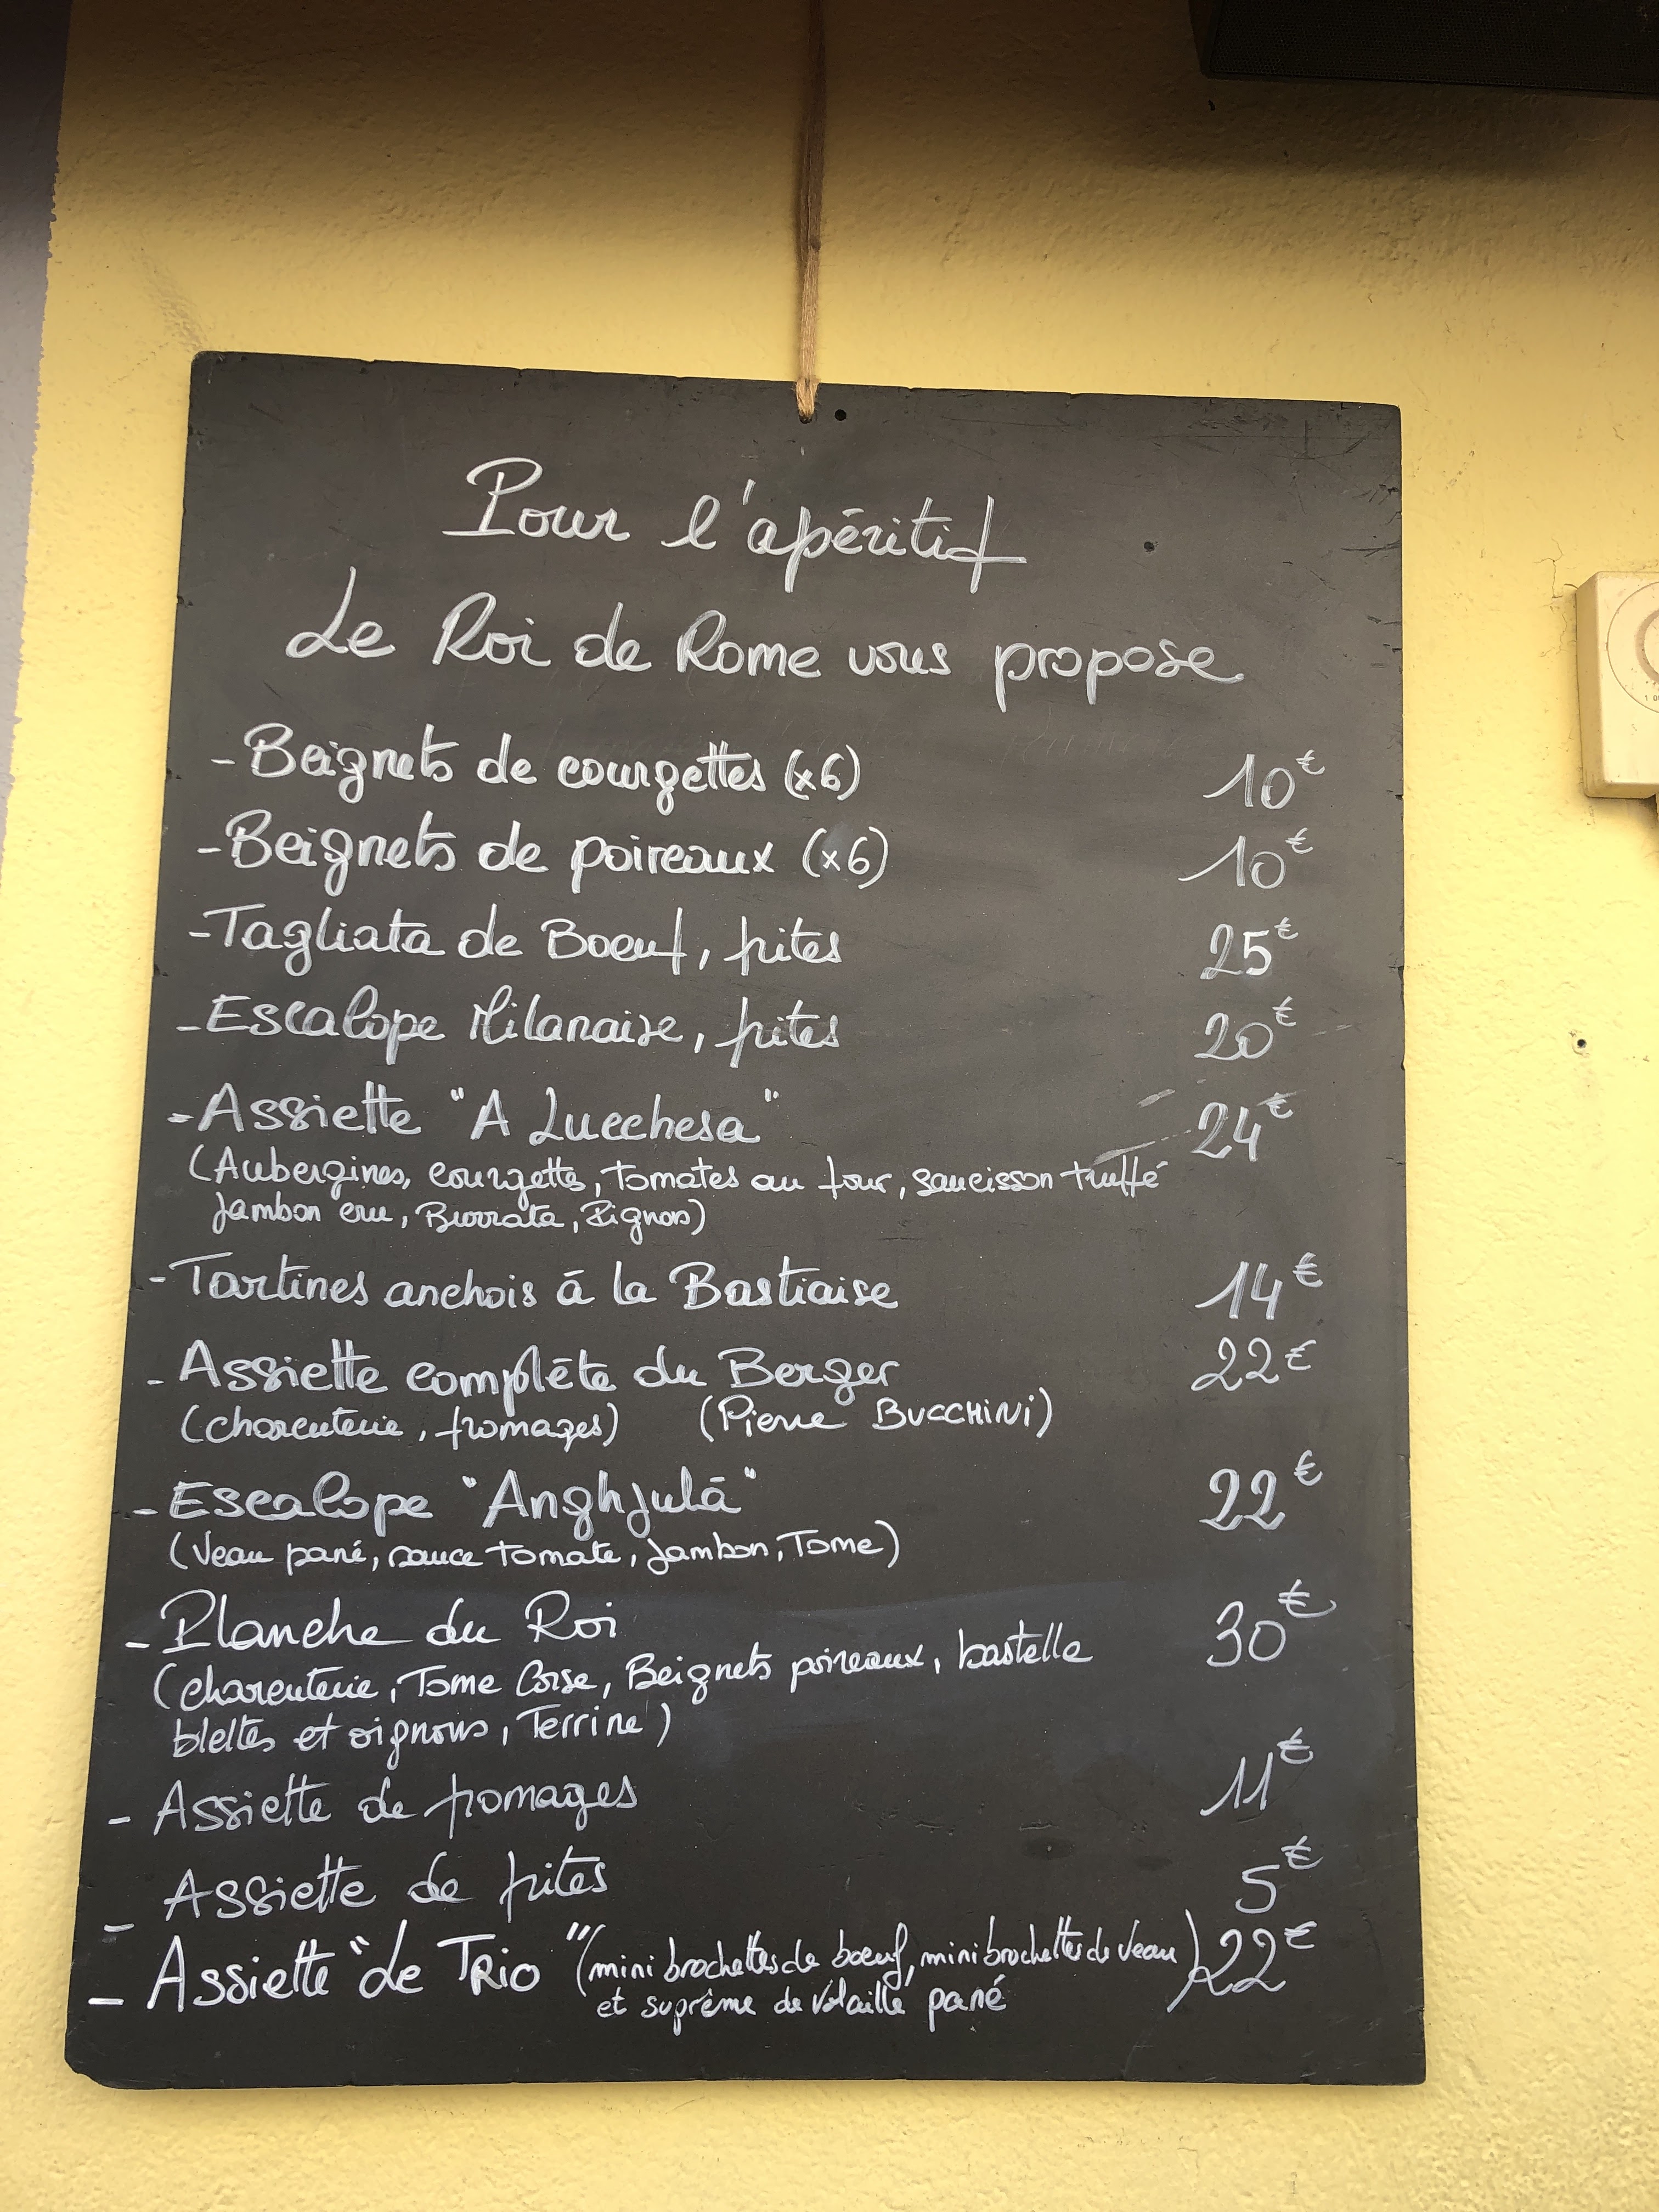 Pour l'apéritif
Le Roi de Rome vous propose
- Beignets de courgettes (x6) 10€
- Beignets de poireaux (x6) 10€
- Tagliata de Boeuf, frites 25€
- Escalope Milanaise, frites 20€
- Assiette "A Lucchesa" 24€
(Aubergines, courgettes, tomates au four, saucisson truffé
Jambon cru, Burrata, Pignons)
- Tartines anchois à la Bastiaise 14€
- Assiette complète du Berger 22€
(charcuterie, fromages) (Pierre BUCCHINI)
- Escalope "Anghjulà" 22€
(Veau pané, sauce tomate, Jambon, Tome)
- Planche du Roi 30€
(charcuterie, Tome Corse, Beignets poireaux, bastelle
blettes et oignons, Terrine)
- Assiette de fromages 11€
- Assiette de frites 5€
- Assiette "Le TRIO" (mini brochettes de boeuf, mini brochettes de veau 22€
et suprême de volaille pané)